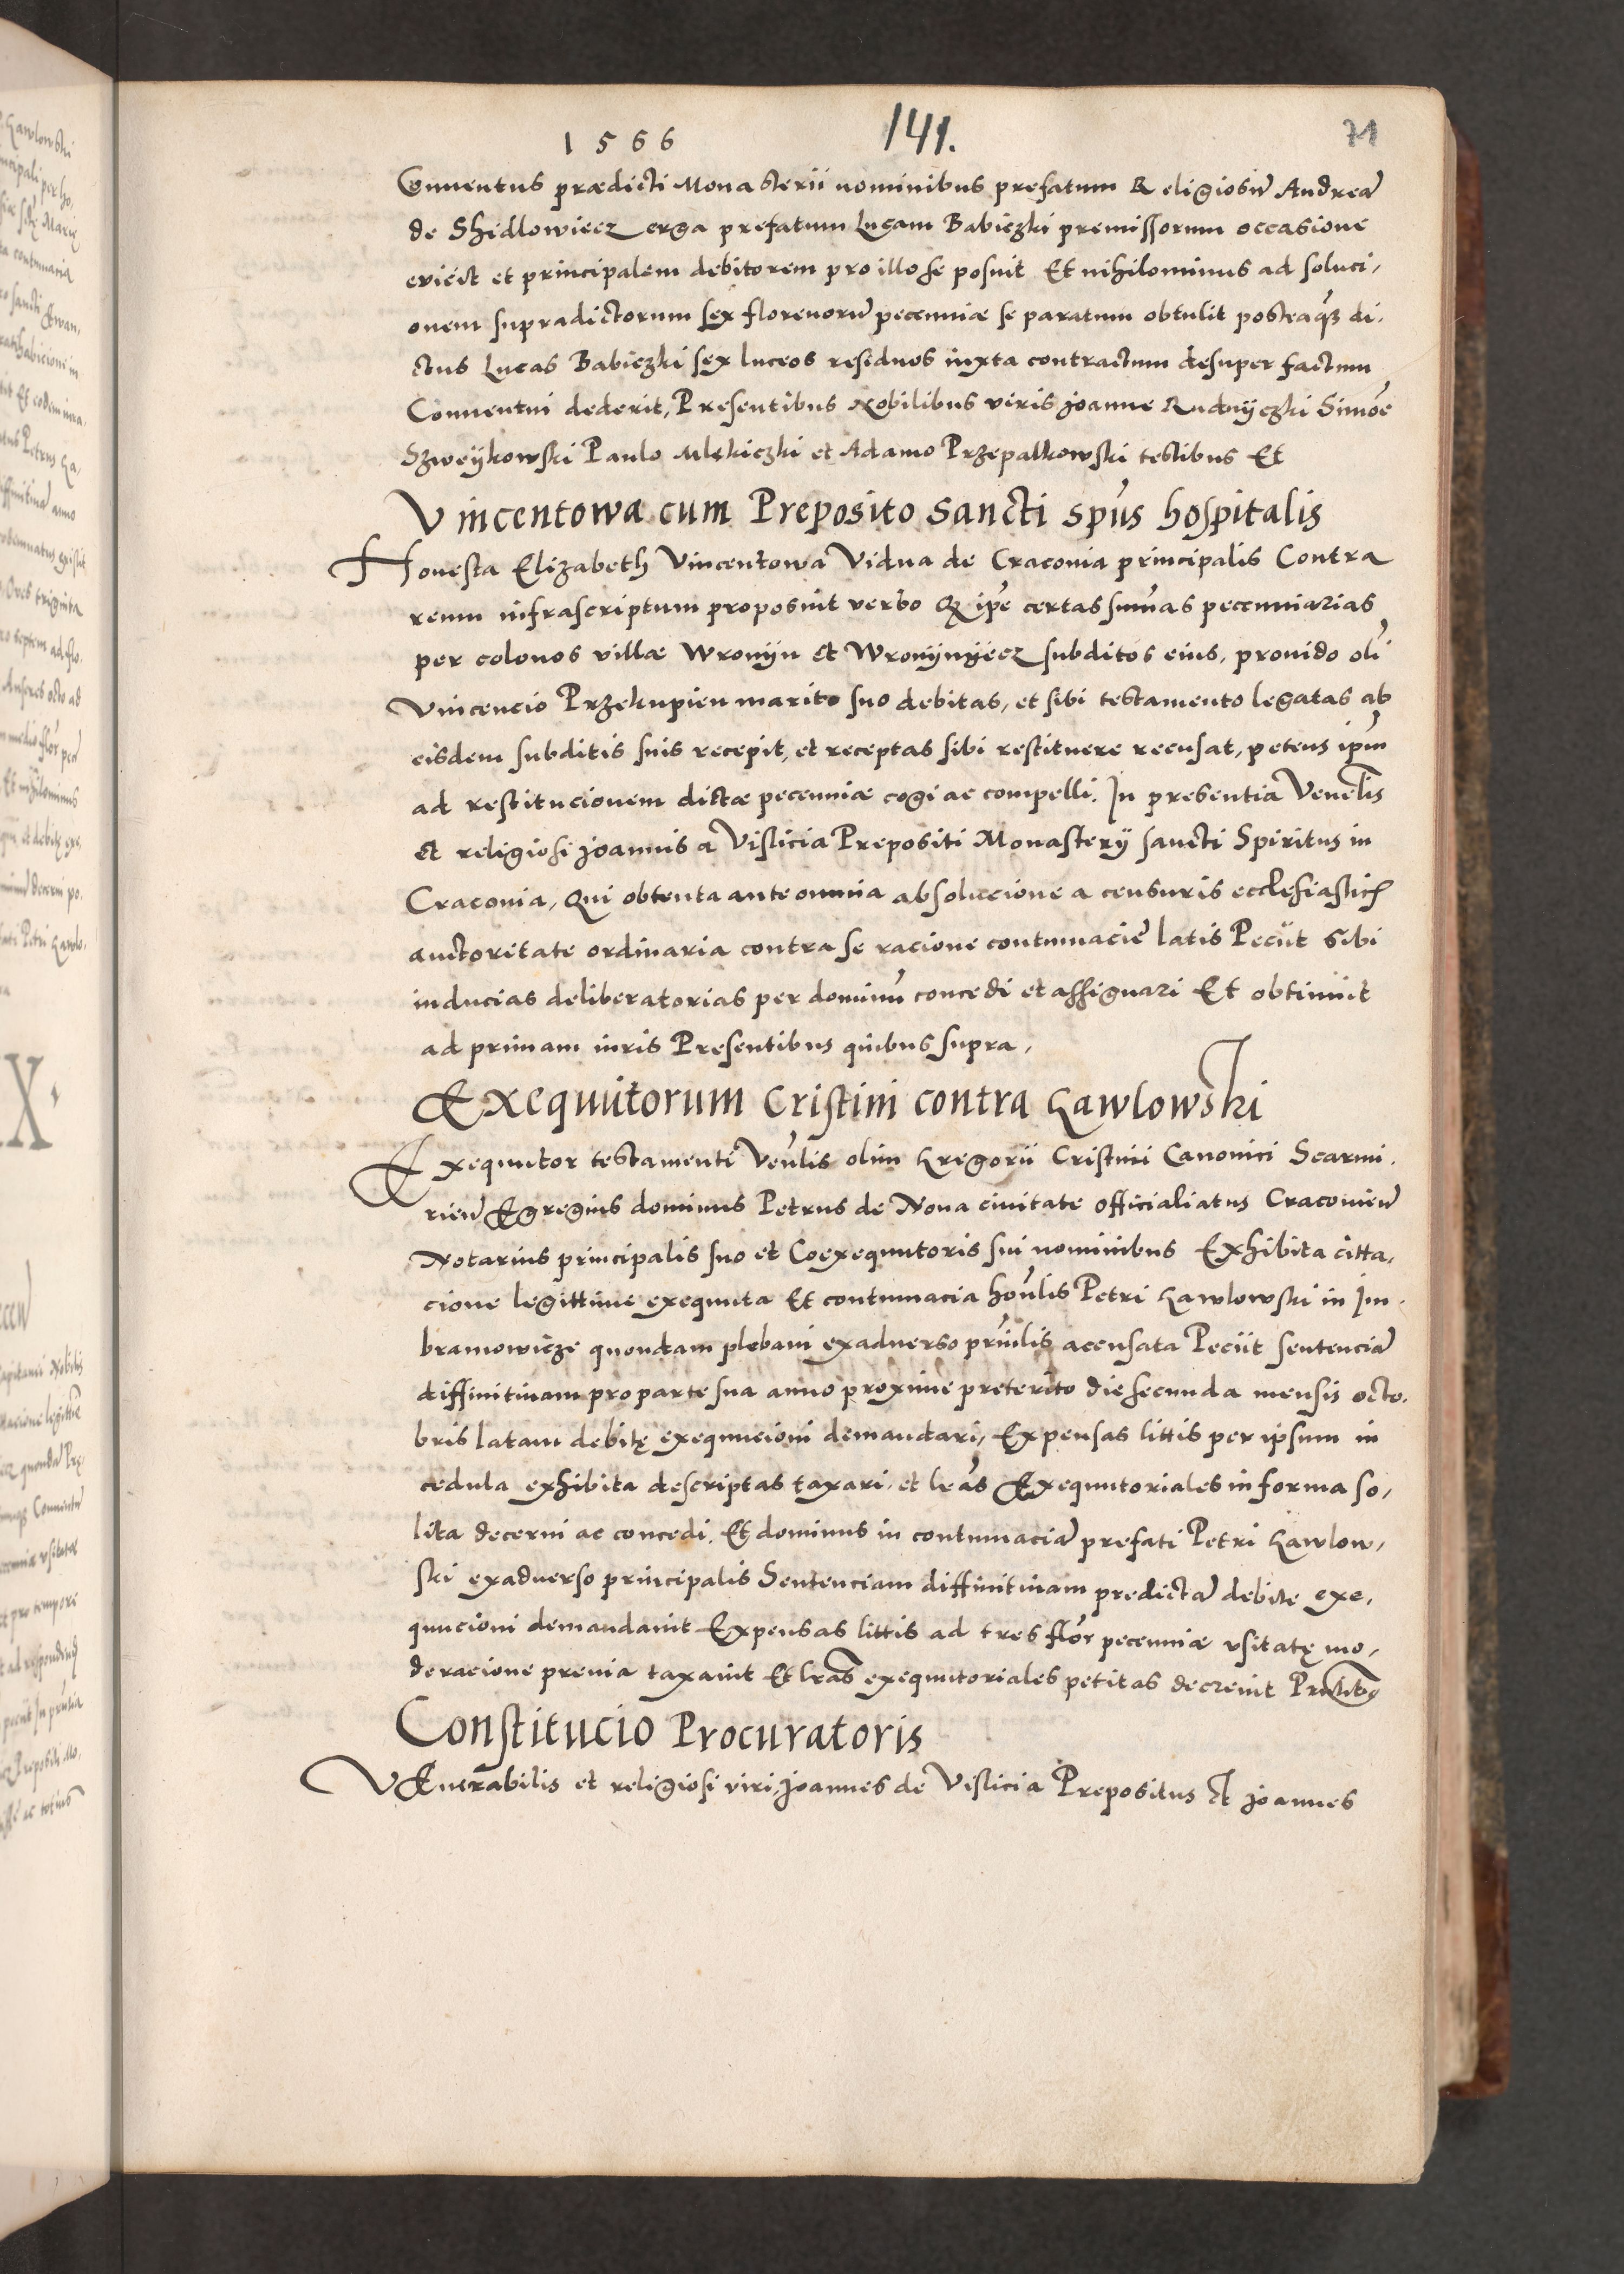 1566 141. 71
Conuentus prædicti Monasterii nominibus prefatum Religiosũ Andreã
de Shidlowiecz erga prefatum Lucam Babiczki premissorum occasione
evicit et principalem debitorem pro illo se posuit Et nihilominus ad soluci,
onem supradictorum sex florenorũ pecuniæ se paratum obtulit posteaq̃ȝ di,
ctus Lucas Babiczki sex luceos residuos iuxta contractum desuper factum
Conuentui dederit, Presentibus Nobilibus viris Joanne Rudnyczki Simõe
Szweykowski Paulo Mlękiczki et Adamo Przepalkowski testibus Et
Vincentowa cum Preposito Sancti Spũs hospitalis
Honesta Elizabeth Vincentowa Vidua de Cracouia principalis Contra
reum infrascriptum proposuit verbo Q ipẽ certas sum̃as pecuniarias
per colonos villæ Wronÿn et Wronÿnÿecz subditos eius, prouido olĩ
Vincencio Przekupien marito suo debitas, et sibi testamento legatas ab
eisdem subditis suis recepit, et receptas sibi restituere recusat, petens ipm̃
ad restitucionem dictæ pecuniæ cogi ac compelli. In presentia Veneᷓlis
et religiosi Joannis a Vislicia Prepositi Monasterÿ sancti Spiritus in
Cracouia, Qui obtenta ante omnia absolucione a censuris ecclesiastic̃
auctoritate ordinaria contra se racione contumaciẽ latis Peciit Sibi
inducias deliberatorias per dominũ concedi et assignari Et obtinuit
ad primam iuris Presentibus quibus supra,
Exequutorum Cristini contra Gawlowski
Exequutor testamenti Veñlis olim Gregorii Cristini Canonici Scarmi,
rieñ Egregius dominus Petrus de Noua ciuitate officialiatus Cracouieñ
Notarius principalis suo et Coexequutoris sui nominibus Exhibita citta,
cione legittime exequuta Et contumacia hoñlis Petri Gawlowski in Im,
bramowicze quondam plebani exaduerso prñilis accusata Peciit sentenciã
diffinitiuam pro parte sua anno proxime preterito die secunda mensis octo,
bris latam debitę exequucioni demandari, Expensas littis per ipsum in
cedula exhibita descriptas taxari, et lr̃as Exequutoriales in forma so,
lita decerni ac concedi. Et dominus in contumaciã prefati Petri Gawlow,
ski exaduerso principalis Sentenciam diffinitiuam predictã debite exe,
quucioni demandauit Expensas littis ad tres flor̃ pecuniæ vsitatę mo,
deracione preuia taxauit Et lr̃as exequutoriales petitas decreuit
Constitucio Procuratoris
VEnerabilis et religiosi viri Joannes de Vislicia Prepositus et Joannes